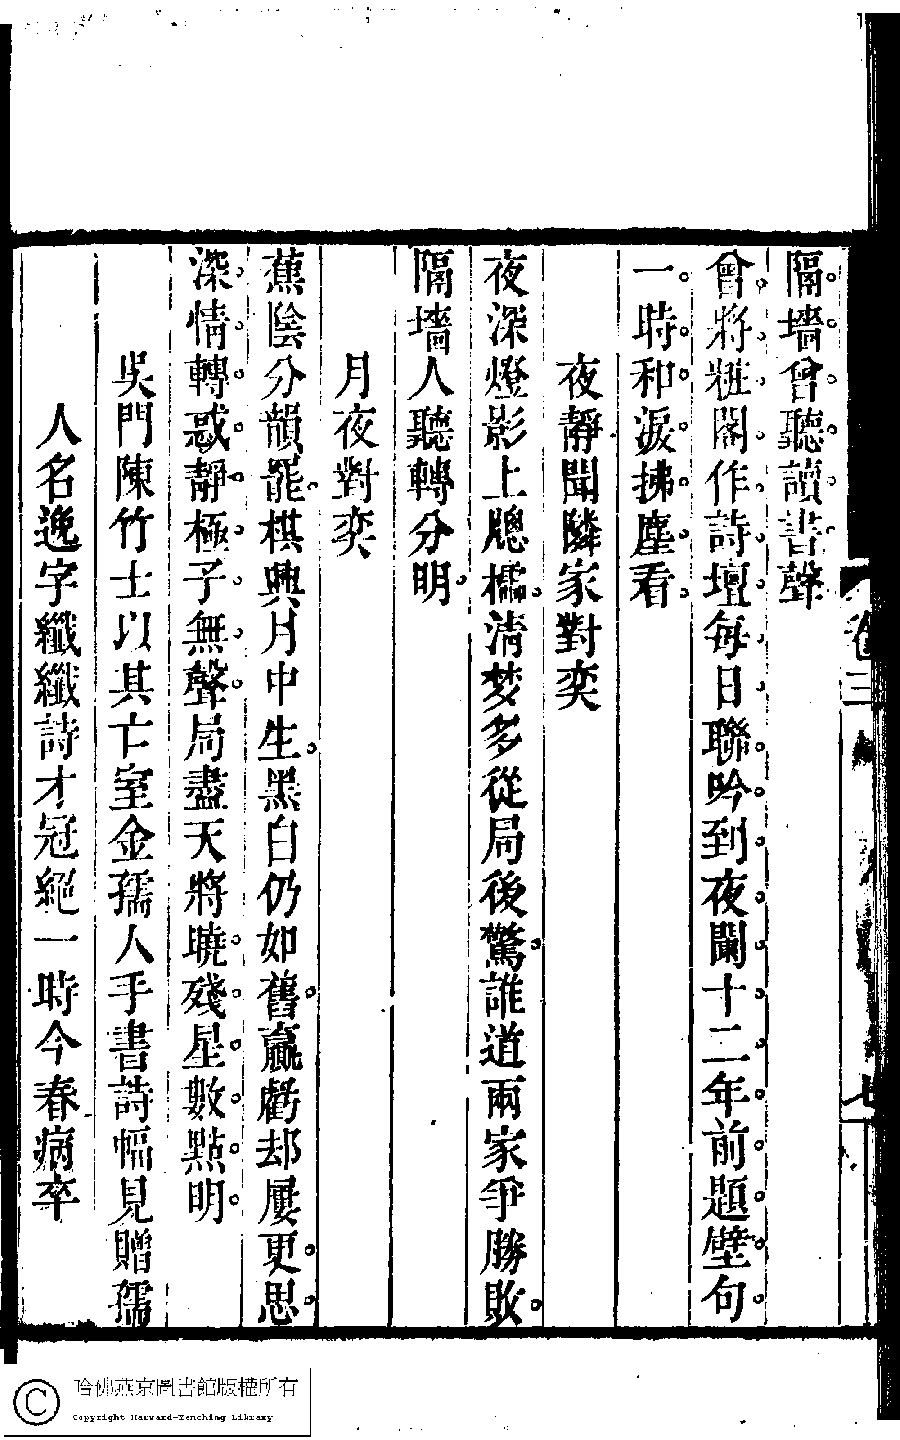 隔墻曾聽讀書聲
曾將粧閣作詩壇每日聯吟到夜闌十二年前題壁句
一時和淚拂塵看
夜靜聞隣家對奕
夜深燈影上牕櫺清梦多從局後驚誰道兩家爭勝敗
隔墻人聽轉分明
月夜對奕
蕉陰分韻罷棋興月中生黑白仍如舊贏虧却屢更思
深情轉惑靜極子無聲局盡天將曉殘星數點明
吳門陳竹士以其亡室金孺人手書詩幅見贈孺
人名逸字纖纖詩才冠絕一時今春病卒
卷三
七
哈佛燕京圖書館版權所有
Copyright Harvard-Yenching Library